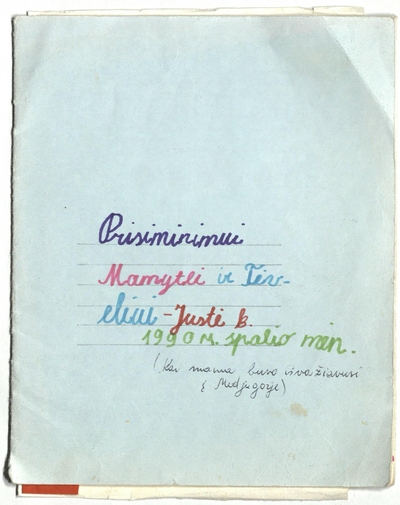 Prisiminimui
Mamytei ir Tėv-
eliui - Justė B.
1990 m. spalio mėn.
(Kai mama buvo išvažiavusi
į Medjugorje)